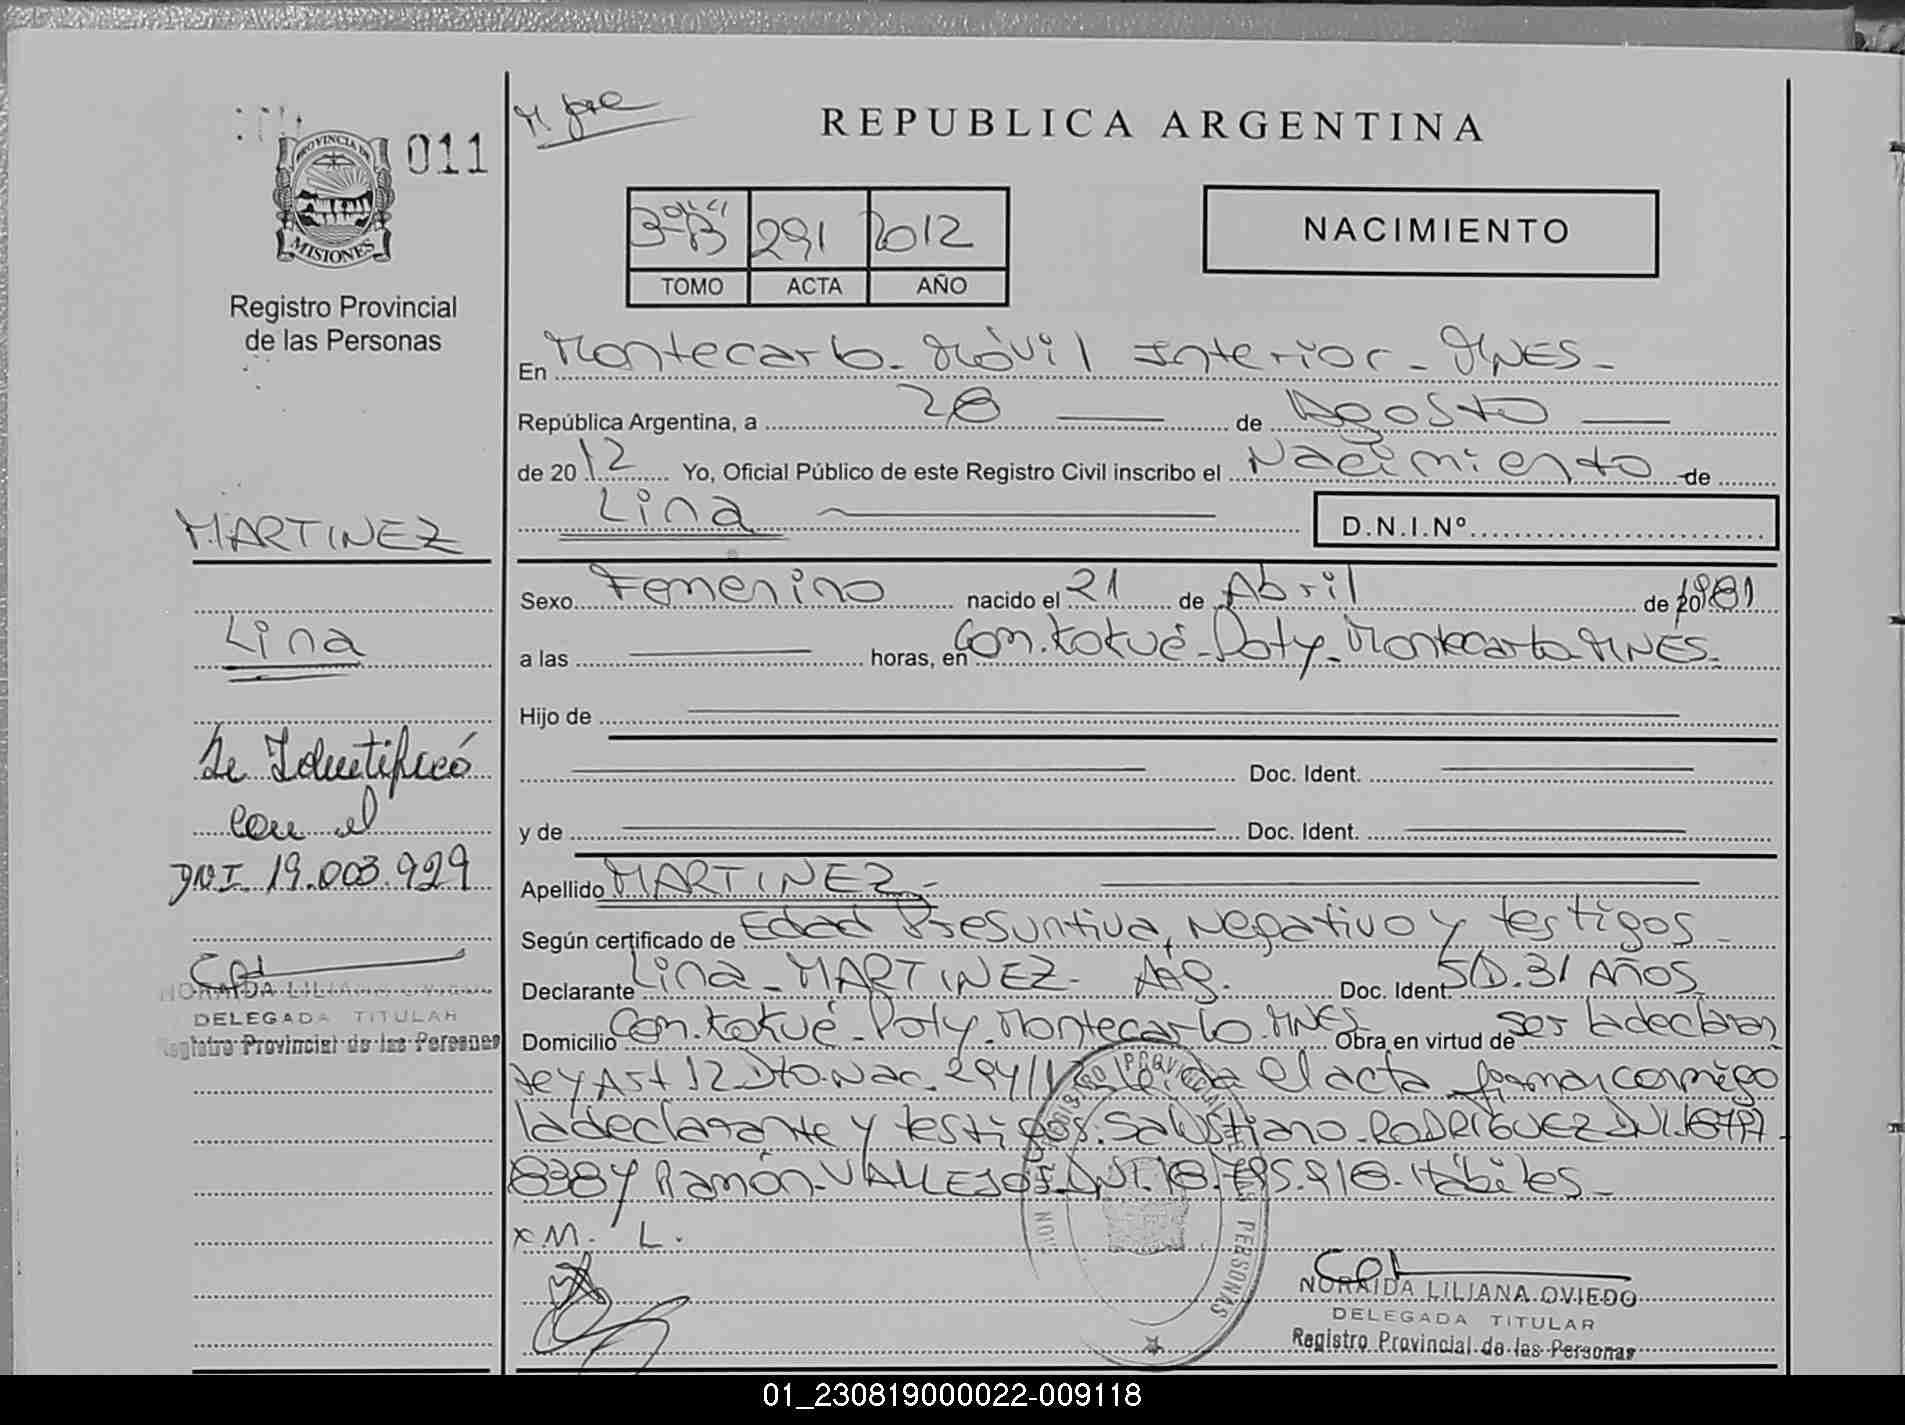 011
PROVINCIA DE
MISIONES
Registro Provincial
de las Personas
REPUBLICA ARGENTINA
291 2012
TOMO ACTA AÑO
NACIMIENTO
En Montecarlo - Móvil Interior - MNES -
República Argentina, a 28 de Agosto
de 2012 Yo, Oficial Público de este Registro Civil inscribo el Nacimiento de
Lina D.N.I.Nº
MARTINEZ
Lina
Se Identificó
con el
DNI 19.003.929
NORAIDA LILIANA OVIEDO
DELEGADA TITULAR
Registro Provincial de las Personas
Sexo Femenino nacido el 21 de Abril de 1981
a las horas, en Com. Kokué - Poty - Montecarlo - MNES -
Hijo de
Doc. Ident.
y de Doc. Ident.
Apellido MARTINEZ -
Según certificado de Edad Presuntiva, Negativo y testigos -
Declarante Lina - MARTINEZ - Arg. Doc. Ident. S/D. 31 AÑOS
Domicilio Com. Kokué - Poty - Montecarlo - MNES - Obra en virtud de ser la declaran
te y Art 12 Dto. Nac. el acta firman conmigo
la declarante y testigos: Salustiano - RODRIGUEZ DNI.
838 y Ramón - VALLEJOS DNI. 18.795.918 - Hábiles -
x M. L.
NORAIDA LILIANA OVIEDO
DELEGADA TITULAR
Registro Provincial de las Personas
01_230819000022-009118